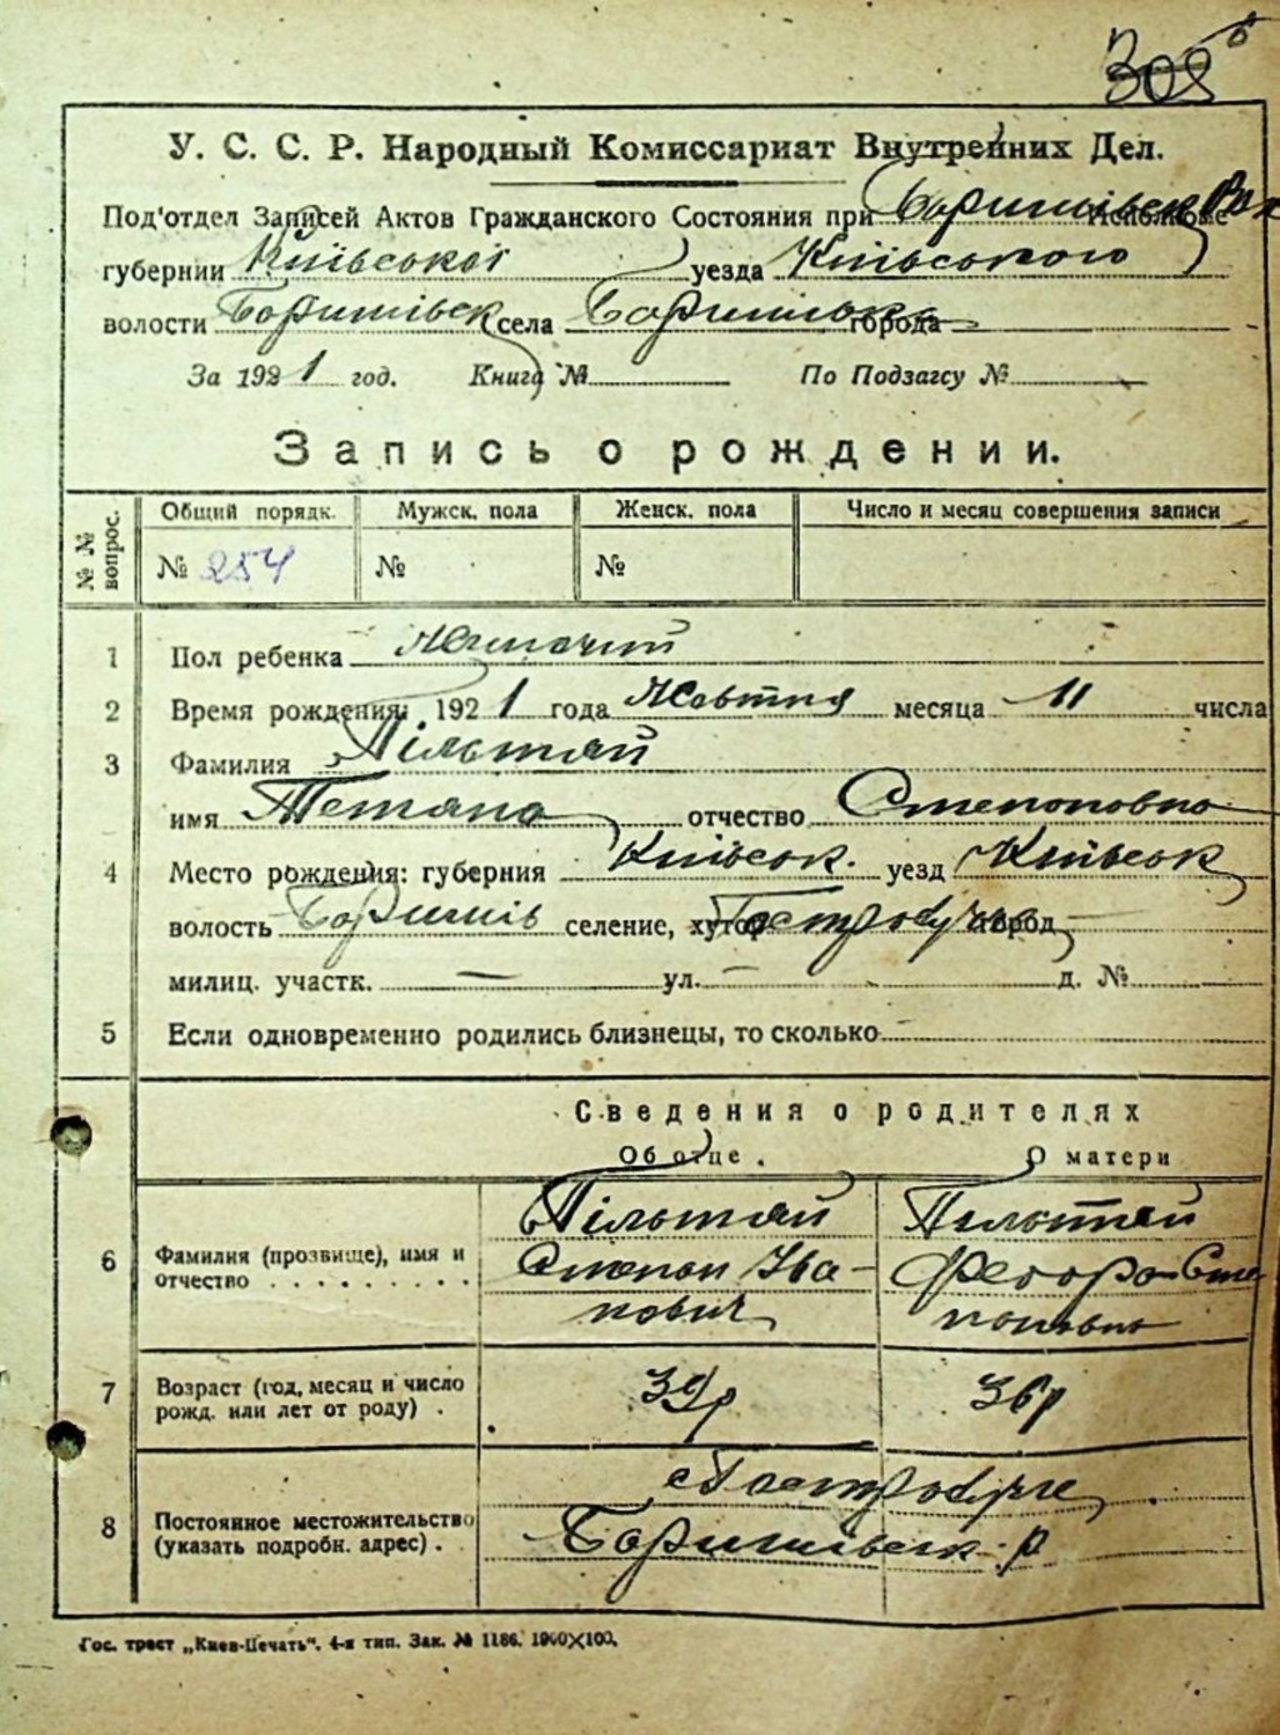 308
У. С. С. Р. Народный Комиссариат Внутрейних Дел.
Под'отдел Записей Актов Гражданского Состояния при Исполкоме
губернии Київської уезда Київського
волости Боришівск села города
За 1921 год. Книга № По Подзагсу №
Запись о рождении.
№ № вопрос. Общий порядк. Мужск. пола Женск. пола Число и месяц совершения записи
№ 254 № №
1 Пол ребенка Жиночий
2 Время рождения: 1921 года Жовтня месяца 11 числа
3 Фамилия Пільтяй
имя Тетяна отчество Степановна
4 Место рождения: губерния Київськ. уезд Київськ
волость Боришів селение, хутор город
милиц. участк. — ул. — д. №
5 Если одновременно родились близнецы, то сколько
Сведения о родителях
Об отце. О матери
6 Фамилия (прозвище), имя и отчество Пільтяй Пильтяй
Степан Іва- Федора Сте
нович пановна
7 Возраст (год, месяц и число рожд. или лет от роду) . 39р 36р
8 Постоянное местожительство (указать подробн. адрес) .
Боришівськ. р
Гос. трест „Киев-Печать“. 4-я тип. Зак. № 1186. 1900×100.